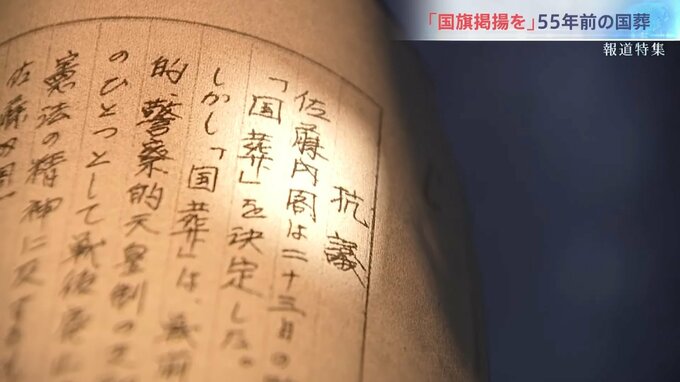 「国旗掲揚を」55年前の国葬
報道特集
抗議
佐藤内閣は二十三日の
「国葬」を決定した。
しかし「国葬」は、戦前
的、警察的天皇制の支
のひとつとして戦後廃に
憲法の精神に反する
佐藤内閣